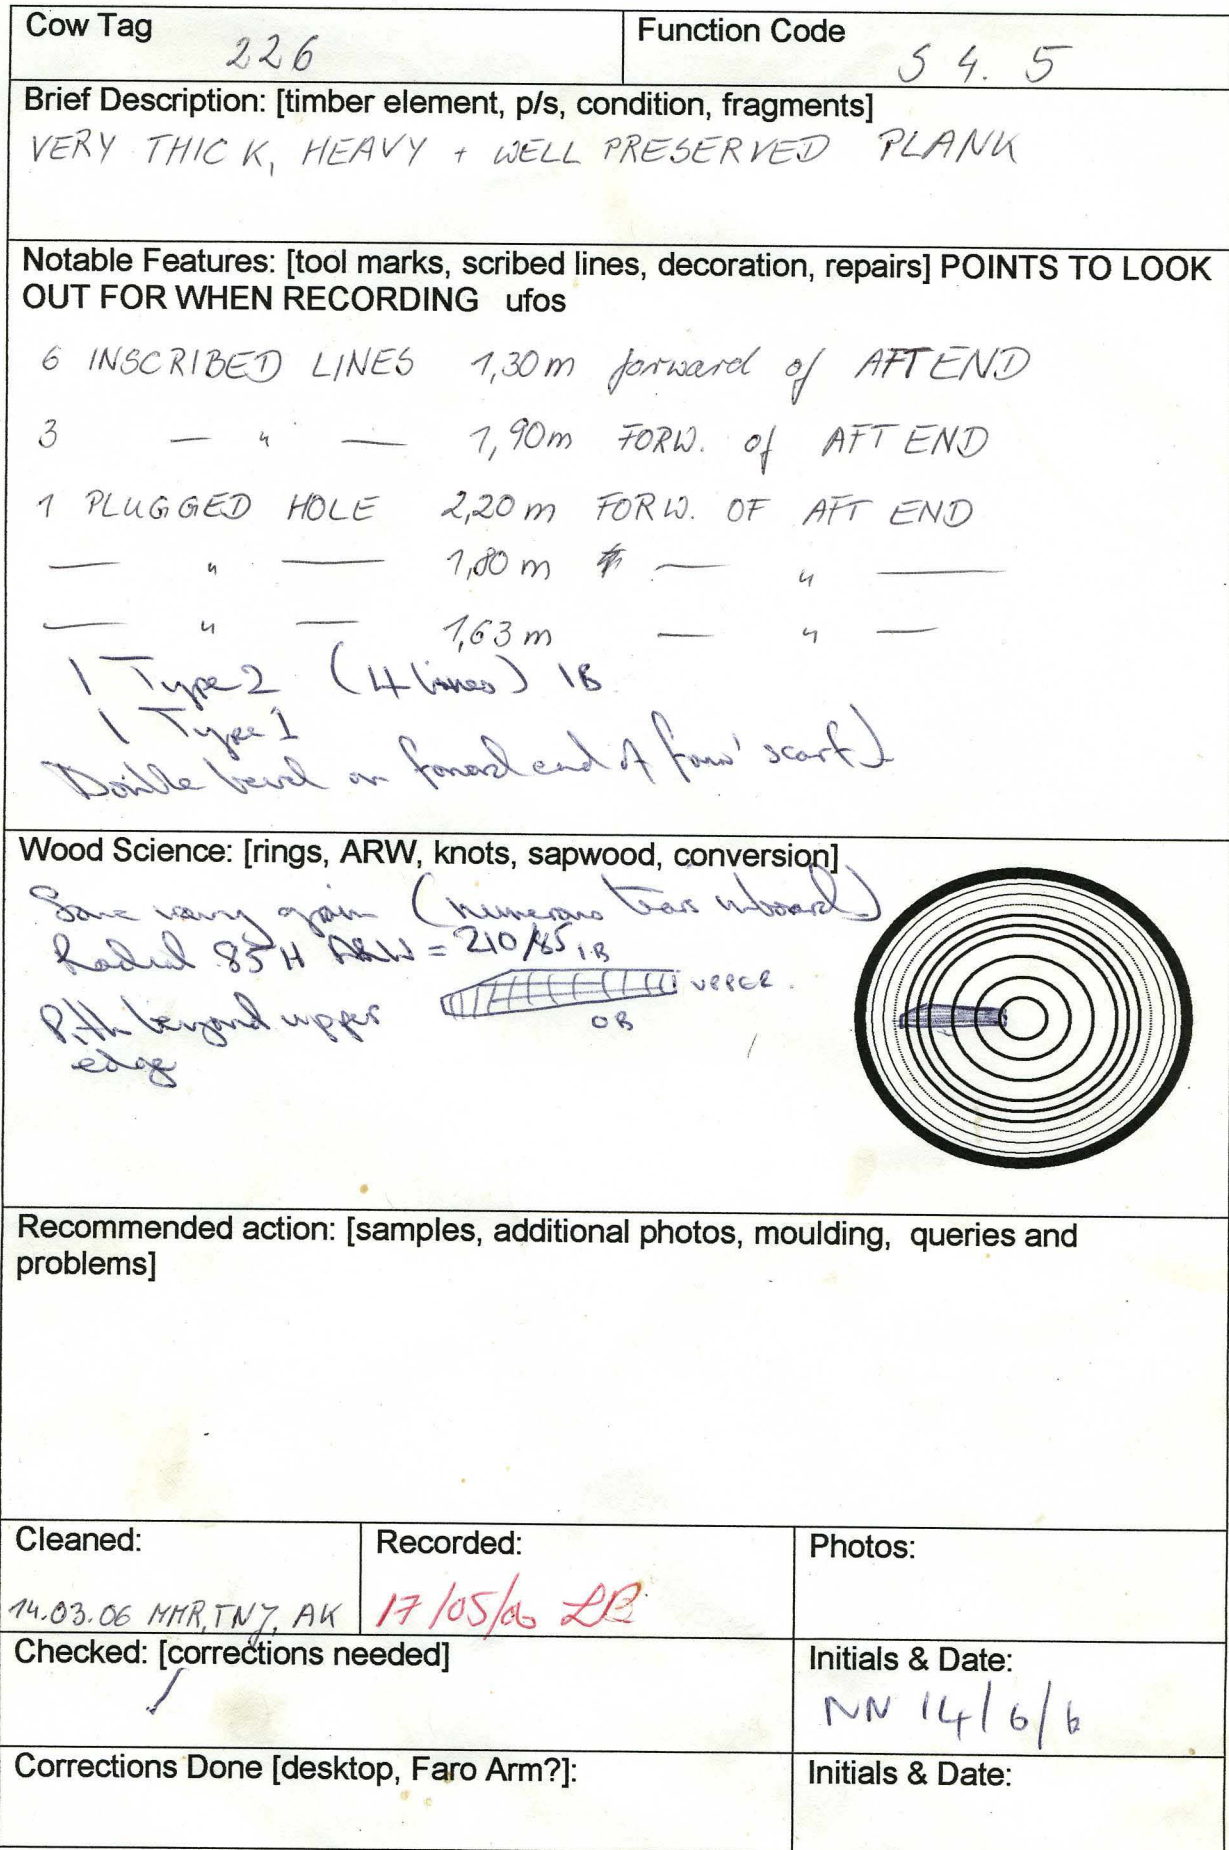 Cow Tag
226
Function Code
S 4. 5
Brief Description: [timber element, p/s, condition, fragments]
VERY THICK, HEAVY + WELL PRESERVED PLANK
Notable Features: [tool marks, scribed lines, decoration, repairs] POINTS TO LOOK
OUT FOR WHEN RECORDING ufos
6 INSCRIBED LINES 1,30m forward of AFT END
3 — " — 1,90m FORW. of AFT END
1 PLUGGED HOLE 2,20 m FORW. OF AFT END
— " — 1,80 m — " —
— " — 1,63 m — " —
1 Type 2 (4 lines) IB
1 Type 1
Double bevel on forward end of forw' scarf
Wood Science: [rings, ARW, knots, sapwood, conversion]
Some wavy grain (numerous tears inboard)
Radial 85 H ARW = 210/85
I.B
UPPER.
Pith beyond upper
OB
edge
Recommended action: [samples, additional photos, moulding, queries and
problems]
Cleaned:
14.03.06 MMR, TNJ, AK
Recorded:
17/05/06 LB
Photos:
Checked: [corrections needed]
/
Initials & Date:
NN 14/6/6
Corrections Done [desktop, Faro Arm?]:
Initials & Date: